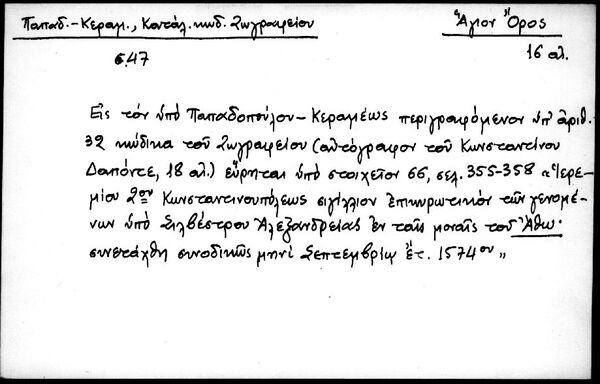 Παπαδ.-Κεραμ., Κατάλ. κωδ. Ζωγραφείου
Ἅγιον Ὄρος
σ.47
16 αἰ.
Εἰς τὸν ὑπὸ Παπαδοπούλου-Κεραμέως περιγραφόμενον ὑπ' ἀριθ.
32 κώδικα τοῦ Ζωγραφείου (αὐτόγραφον τοῦ Κωνσταντίνου
Δαπόντε, 18 αἰ.) εὕρηται ὑπὸ στοιχεῖον 66, σελ. 355-358 "Ἱερε-
μίου 2ου Κωνσταντινουπόλεως σιγίλλιον ἐπικυρωτικὸν τῶν γενομέ-
νων ὑπὸ Σιλβέστρου Ἀλεξανδρείας ἐν ταῖς μοναῖς τοῦ Ἄθω·
συνετάχθη συνοδικῶς μηνὶ Σεπτεμβρίῳ ἔτ. 1574ου"